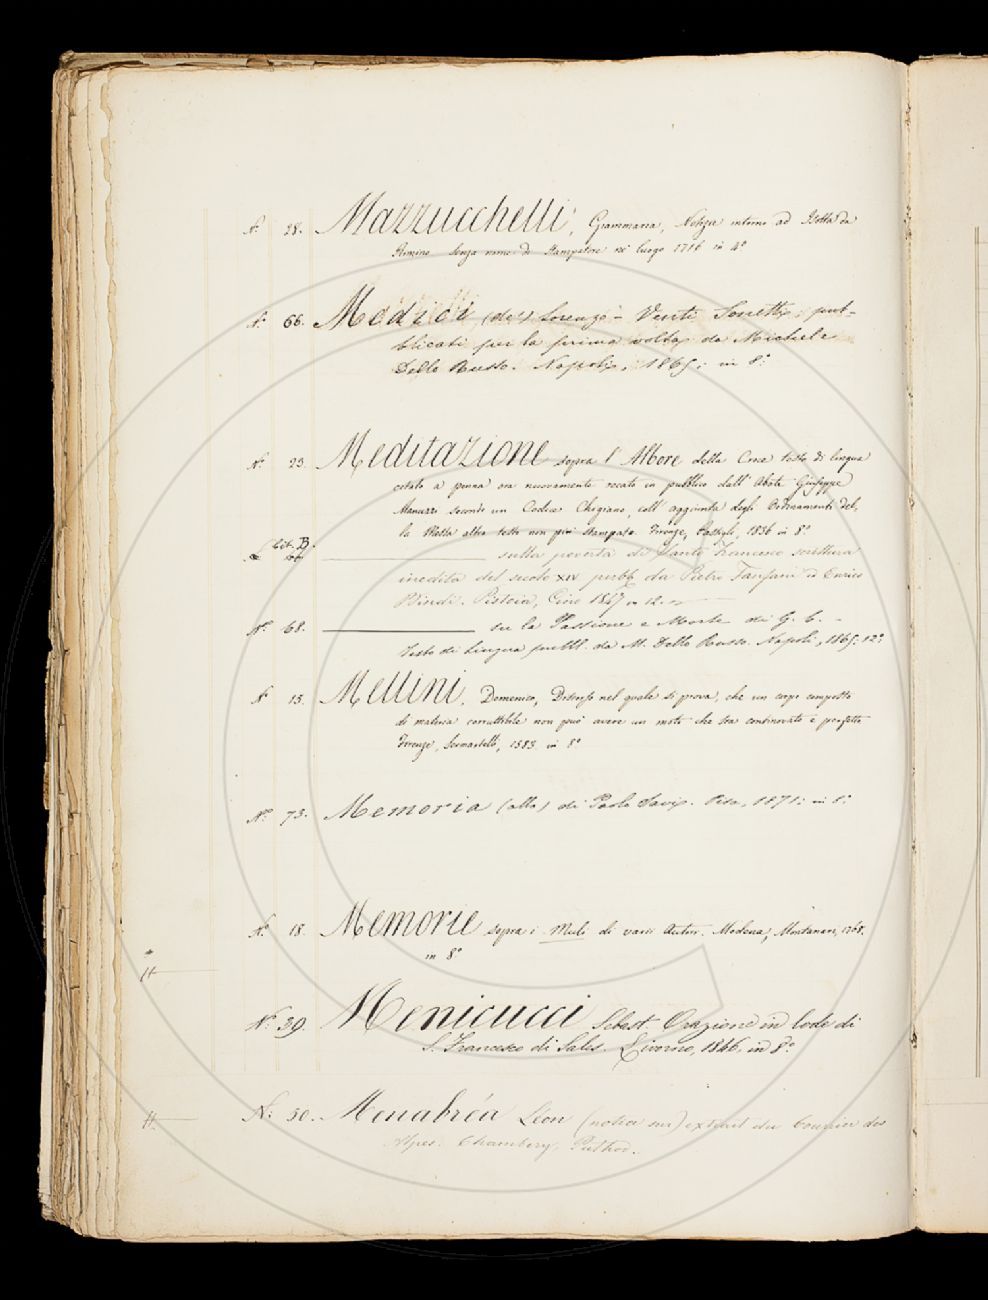 N. 28. Mazzucchelli, Giammaria, Notizie intorno ad Isotta da
Rimino. Senza nome di Stampatore nè luogo 1716 in 4°
N. 66. Medici (de') Lorenzo - Venti Sonetti, pub-
blicati per la prima volta da Michele
Dello Russo. Napoli, 1865; in 8.°
N. 23. Meditazione sopra l'Albore della Croce testo di lingua
citato a penna ora nuovamente recato in pubblico dall'Abate Giuseppe
Manuzzi secondo un Codice Chigiano, coll'aggiunta degli Ordinamenti del-
la Messa altro testo non più stampato. Firenze, Passigli, 1836 in 8°
Lit. B. sulla povertà di Santo Francesco scrittura
inedita del secolo XIV pubb. da Pietro Fanfani e Enrico
Bindi. Pistoia, Cino 1847 in 12.
N. 68. su la Passione e Morte di G. C. -
Testo di Lingua pubbl. da M. Dello Russo. Napoli, 1865. 12°
N. 15. Mellini, Domenico, Discorso nel quale si prova, che un corpo composto
di materia corruttibile non può avere un moto che sia continovato e perfetto
Firenze, Sermartelli, 1583 in 8°
N.° 73. Memoria (alla) di Paolo Savj. Pisa, 1871: in 8.°
N. 18. Memorie sopra i Muli di varii Autori. Modena, Montanari, 1768.
in 8°
H
N. 39. Menicucci Sebast. Orazione in lode di
S. Francesco di Sales. Livorno, 1846, in 8.°
H
N. 50. Menabréa Léon (notice sur) extrait du Courrier des
Alpes. Chambery, Puthod.